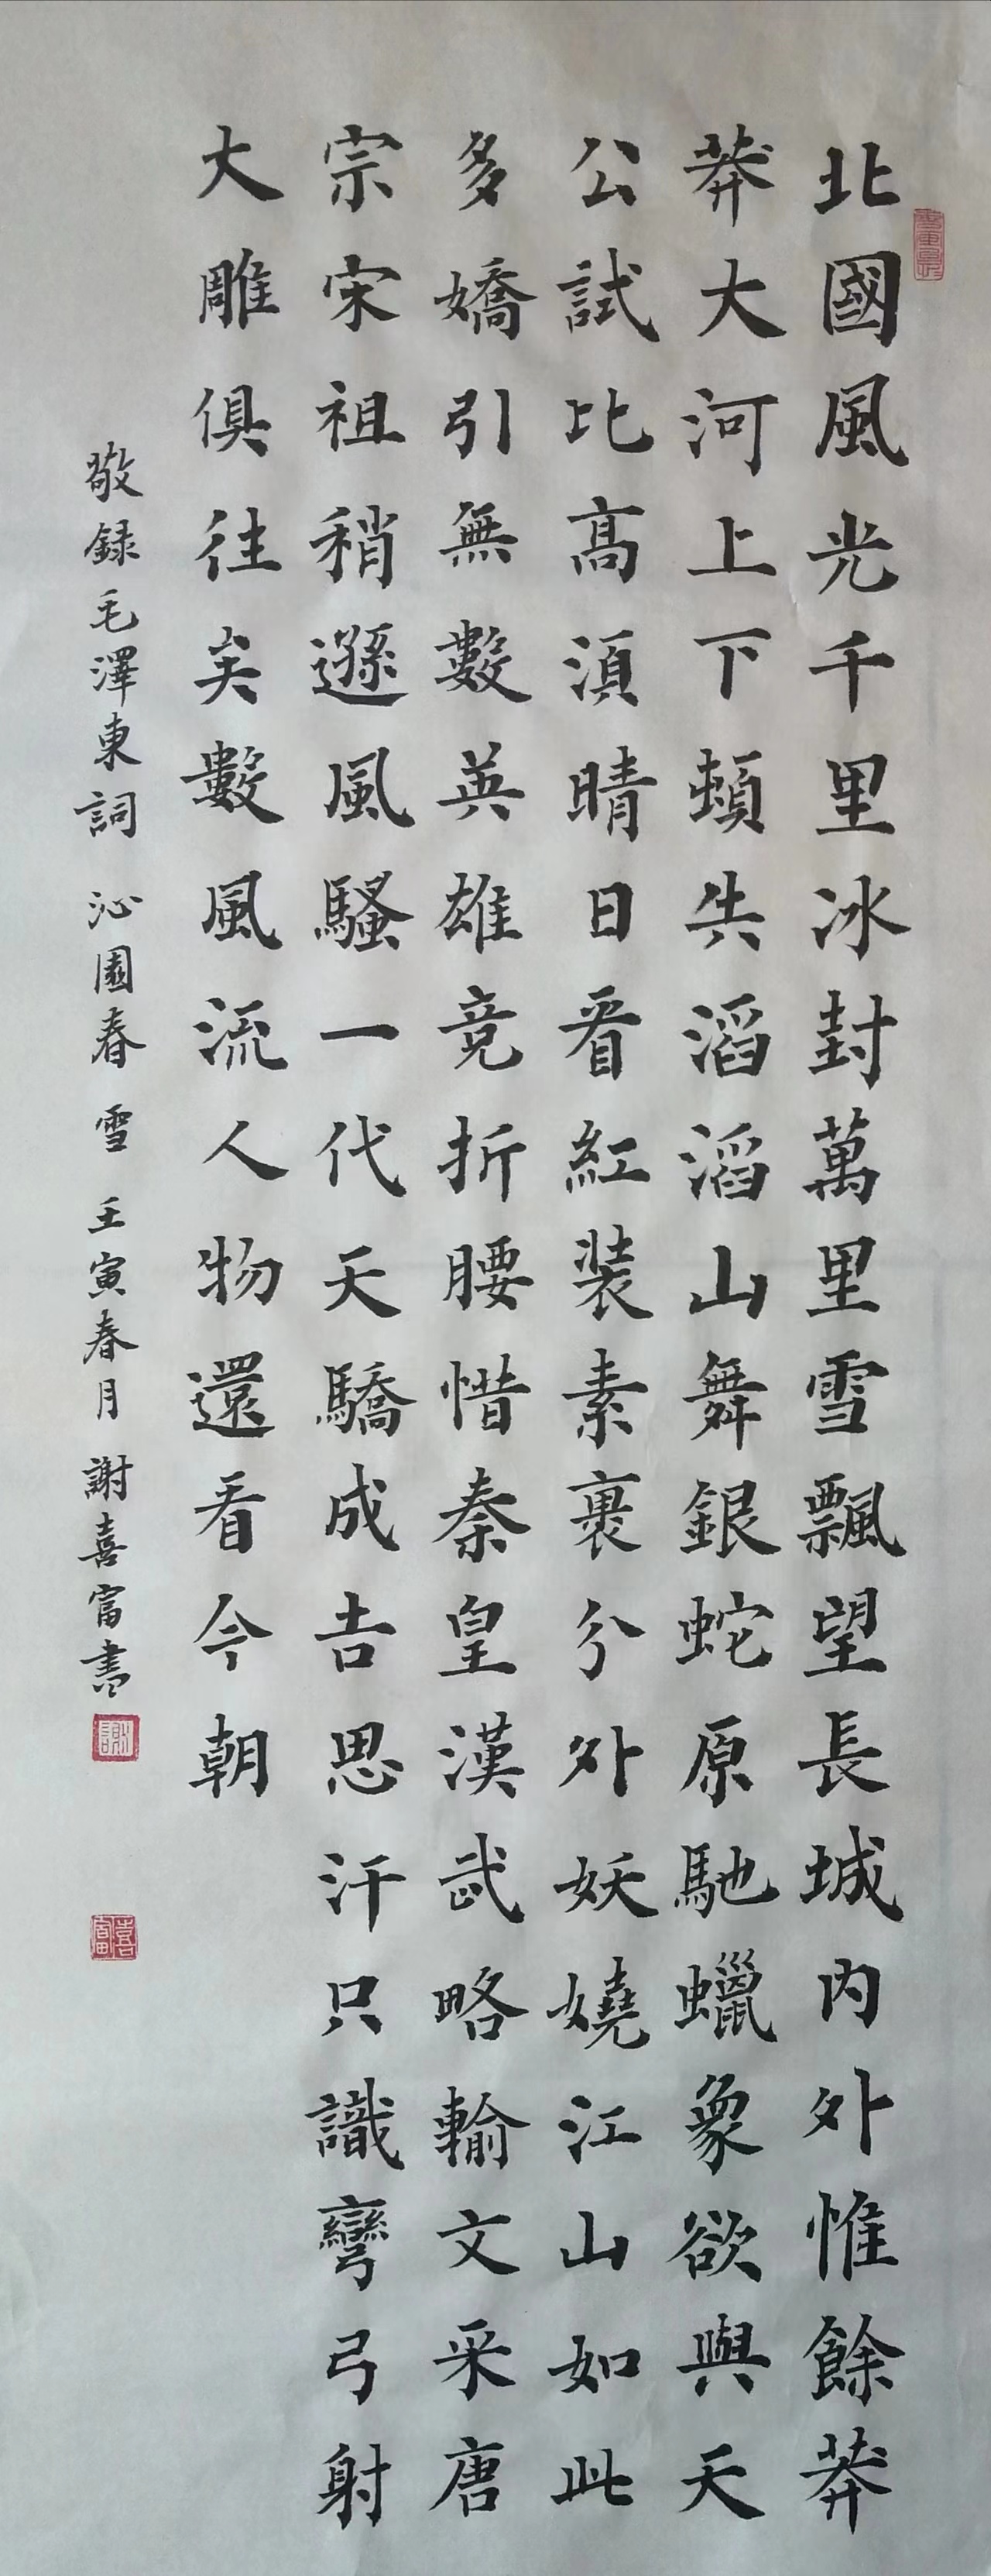 北國風光千里冰封萬里雪飄望長城内外惟餘莽
莽大河上下頓失滔滔山舞銀蛇原馳蠟象欲與天
公試比髙須晴日看紅裝素裹分外妖嬈江山如此
多嬌引無數英雄竞折腰惜秦皇漢武略輸文采唐
宗宋祖稍遜風騷一代天驕成吉思汗只識彎弓射
大雕俱往矣數風流人物還看今朝
敬録毛澤東詞 沁園春 雪 壬寅春月 謝喜富書
謝
喜富